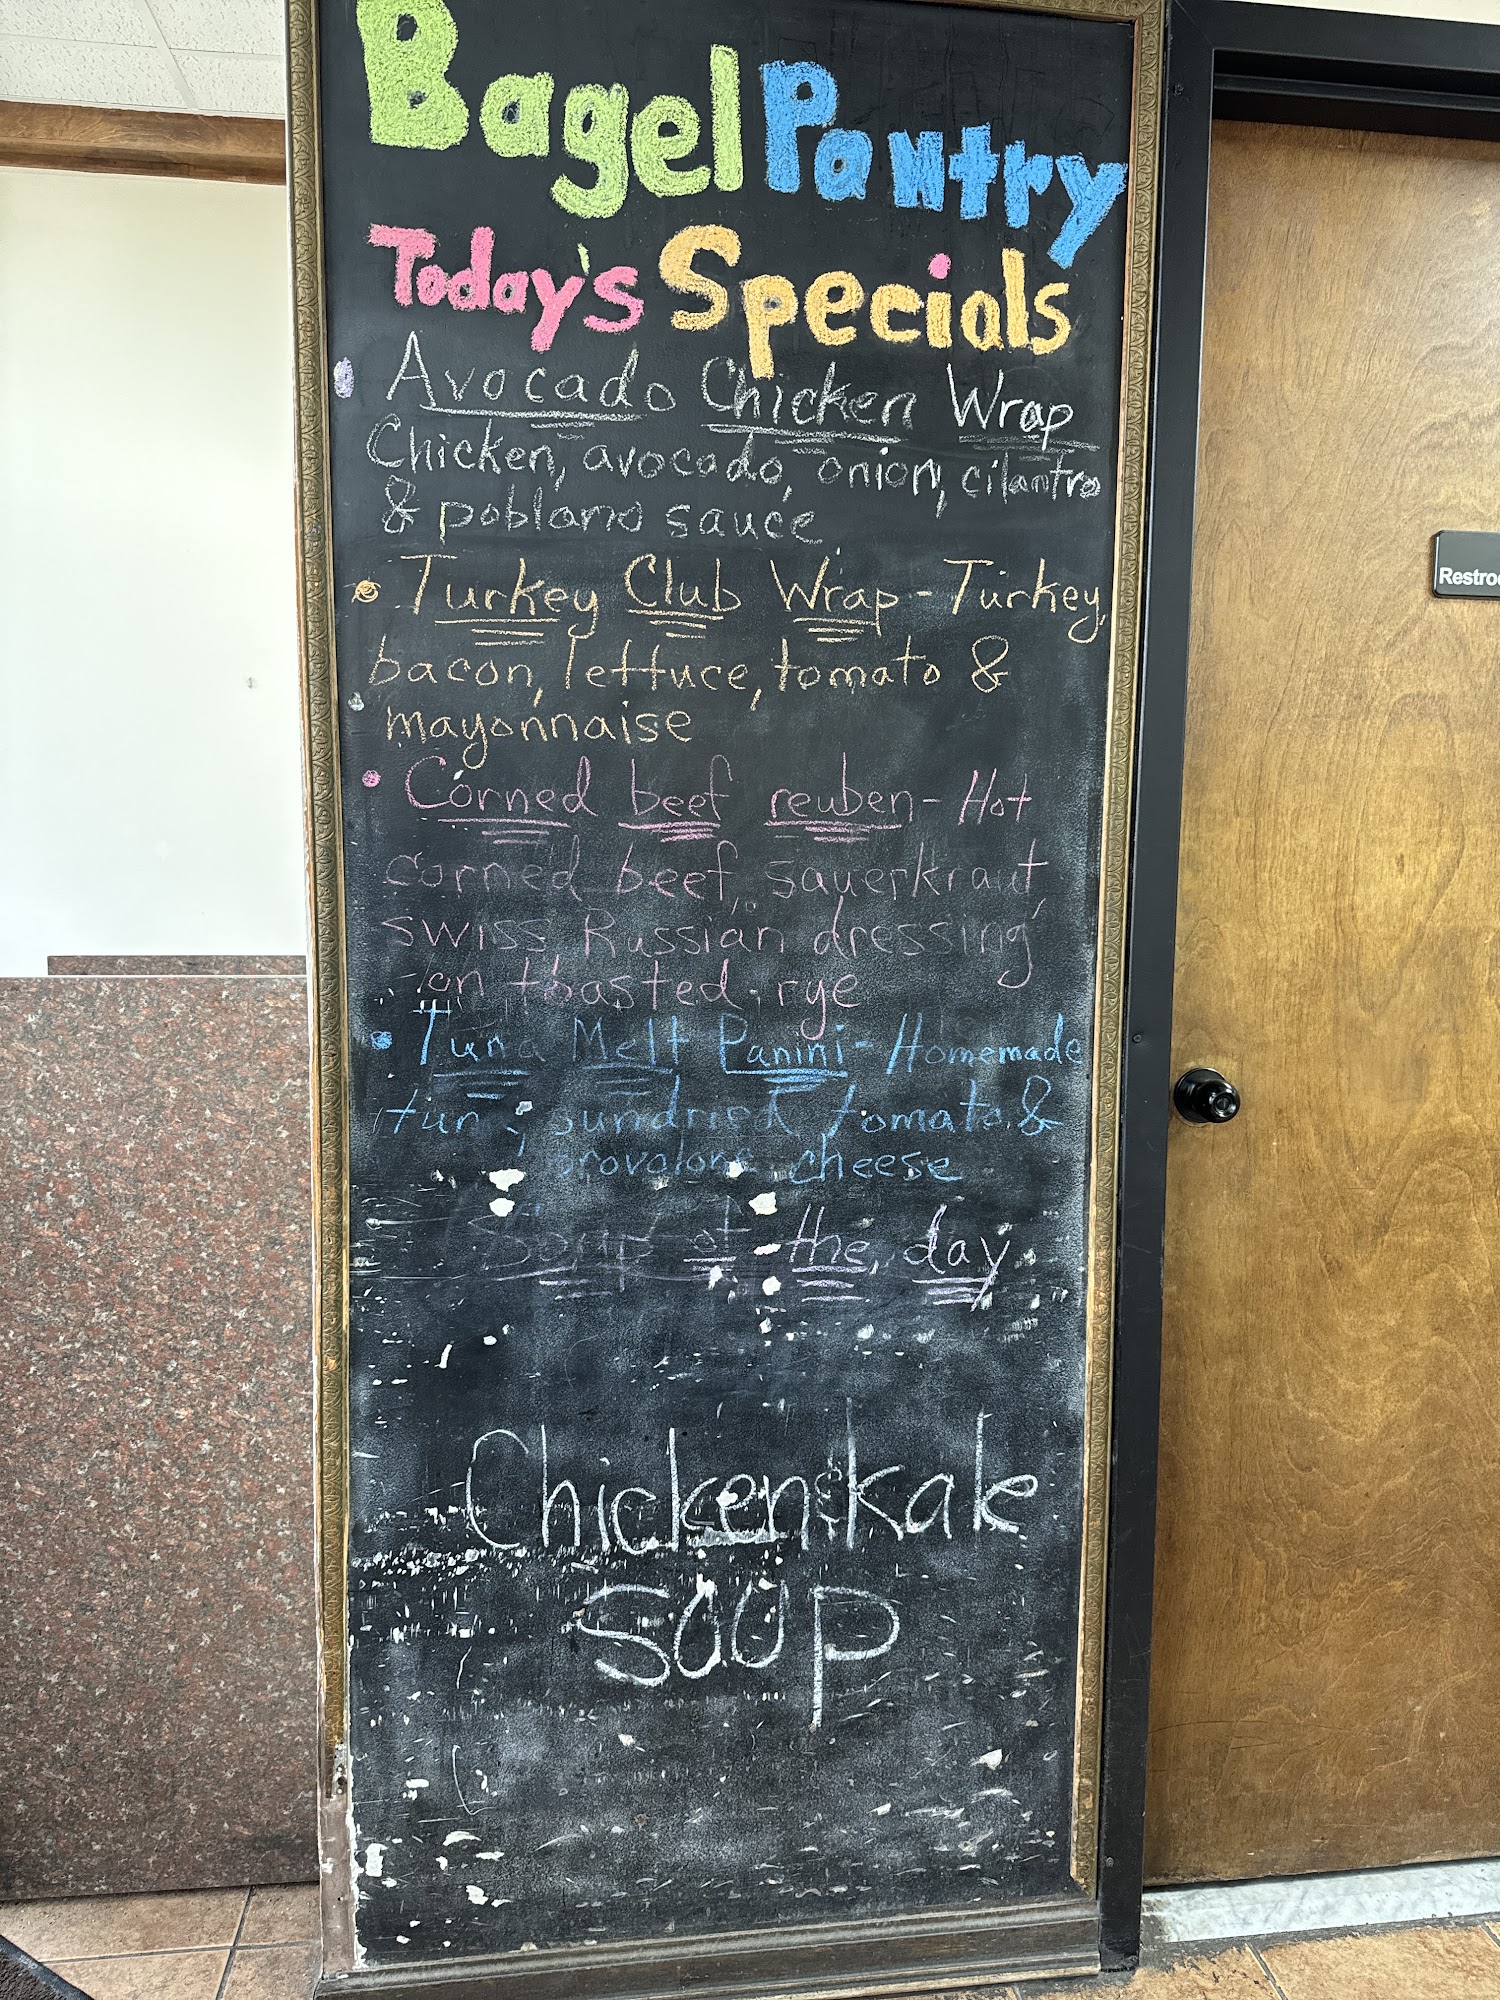 Bagel Pantry
Today's Specials
• Avocado Chicken Wrap
Chicken, avocado, onion, cilantro
& poblano sauce
• Turkey Club Wrap - Turkey,
bacon, lettuce, tomato &
mayonnaise
• Corned beef reuben - Hot
corned beef, sauerkraut,
swiss, Russian dressing
on toasted rye
• Tuna Melt Panini - Homemade
tuna, sundried tomato &
provolone cheese
Soup of the day
Chicken & kale
soup
Restroo